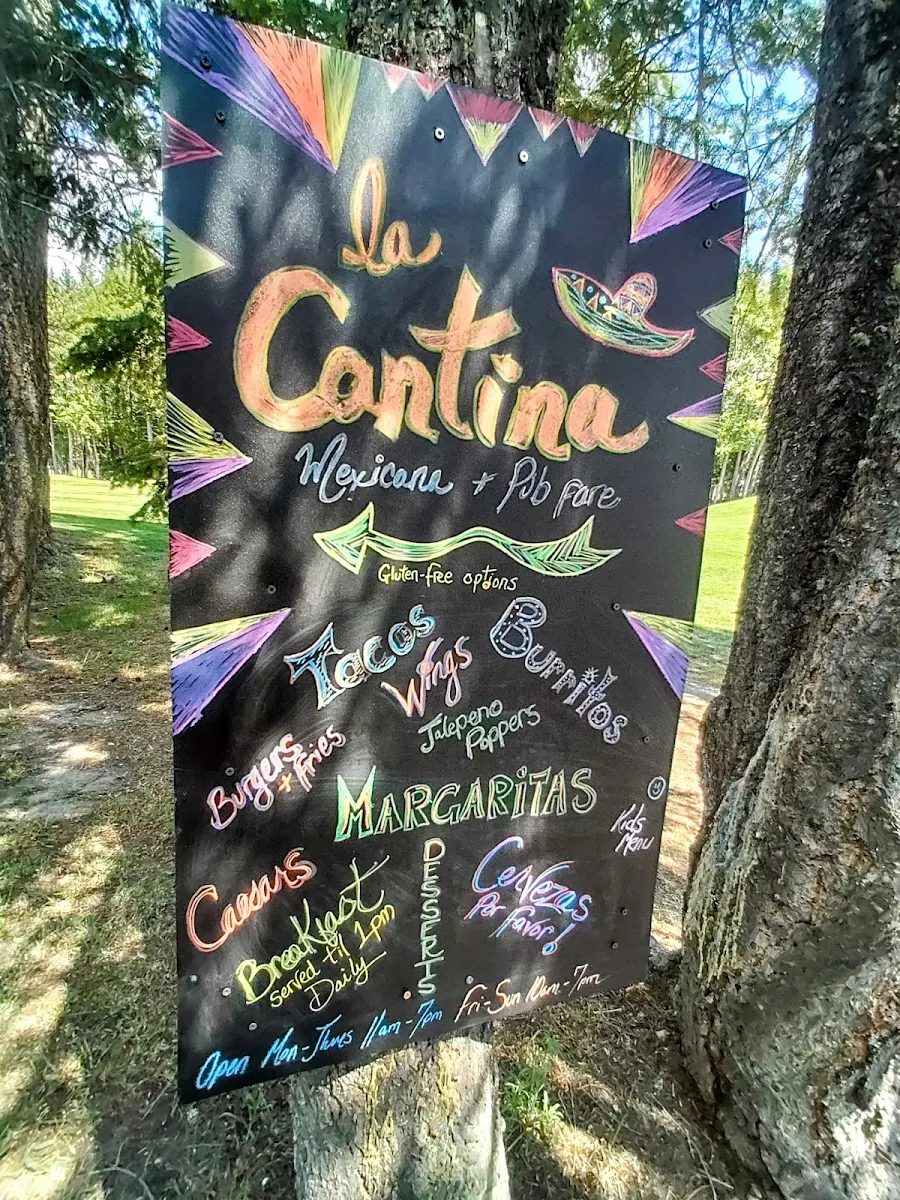 la
Cantina
Mexicana + Pub fare
Gluten-free options
Tacos
Burritos
Wings
Jalepeno
Poppers
Burgers
+ Fries
MARGARITAS
Kids
Menu
Caesars
DESSERTS
Cervezas
Por
Favor!
Breakfast
served til 1pm
Daily
Open Mon-Thurs 11am-7pm Fri-Sun 10am-7pm